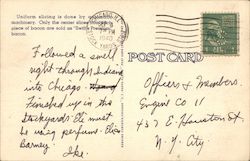 Uniform slicing is done by automatic
machinery. Only the center slices from each
piece of bacon are sold as "Swift's Premium"
bacon.
POST CARD
Followed a smell
right through Indiana
into Chicago.
Finished up in the
Stockyards. Eli must
be using perfume.
Barney.
Ike.
Officers & Members
Engine Co 11
437 E Houston St
N. Y. City